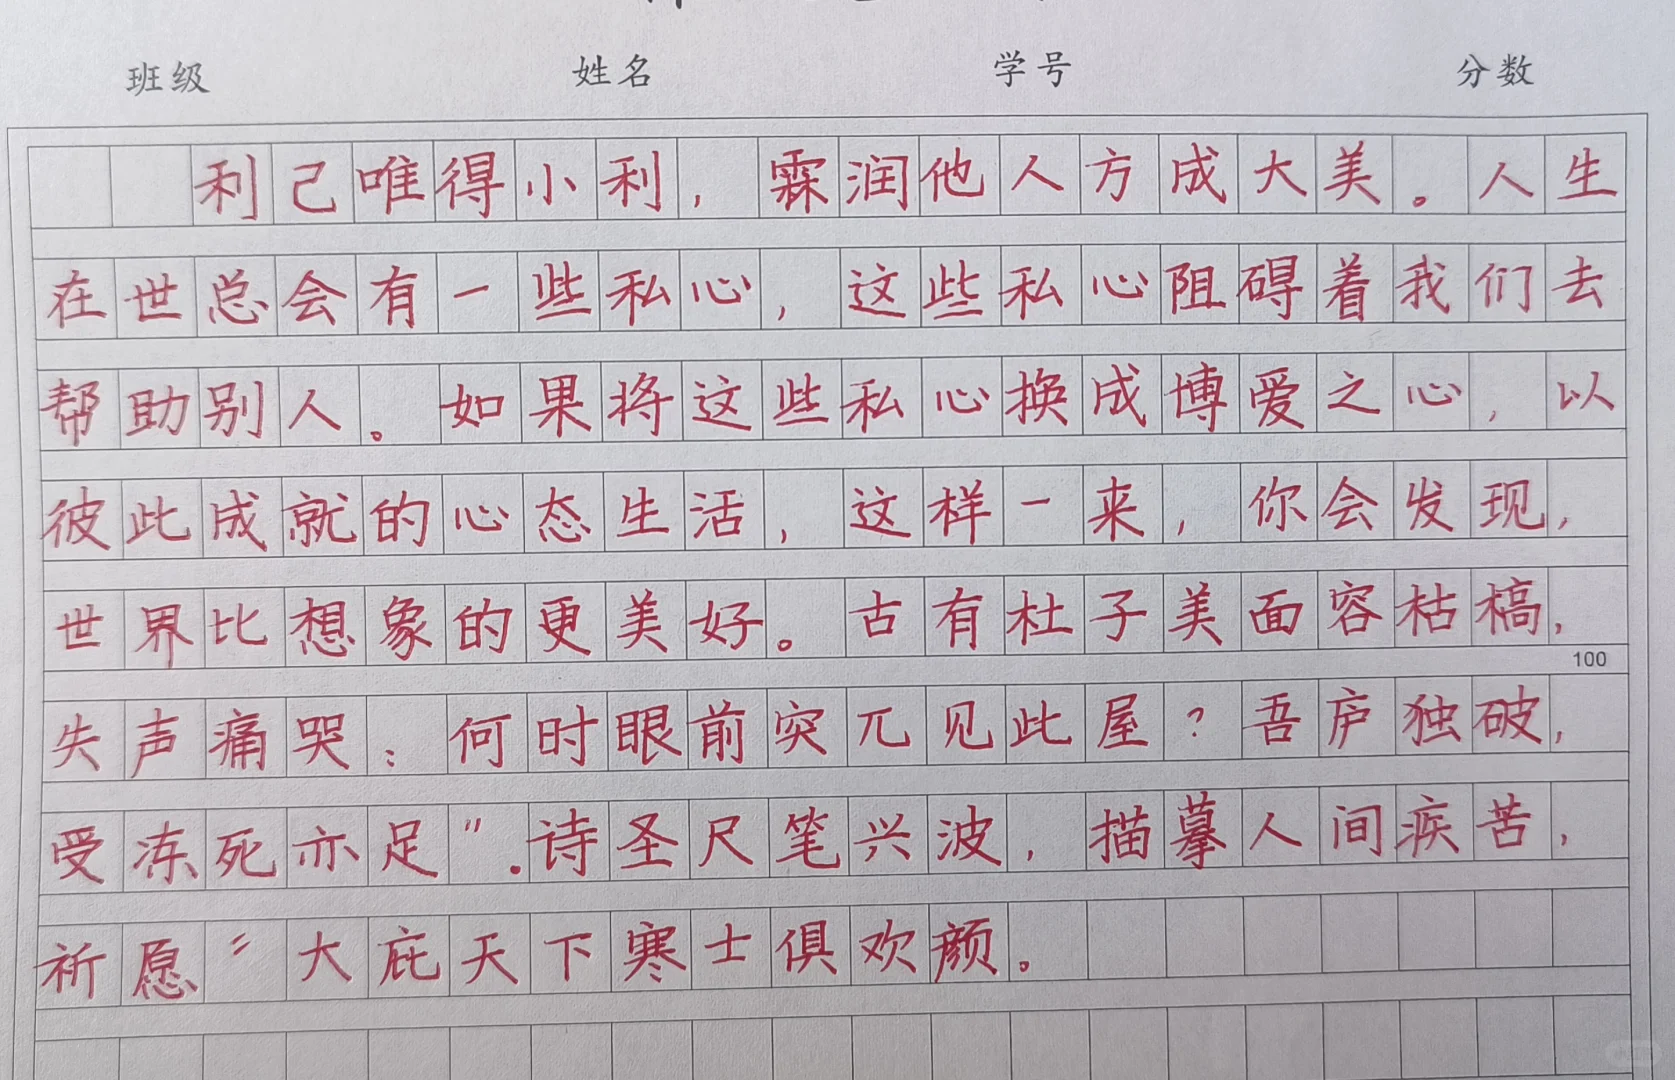 班级 姓名 学号 分数
利己唯得小利，霖润他人方成大美。人生
在世总会有一些私心，这些私心阻碍着我们去
帮助别人。如果将这些私心换成博爱之心，以
彼此成就的心态生活，这样一来，你会发现，
世界比想象的更美好。古有杜子美面容枯槁，
100
失声痛哭：何时眼前突兀见此屋？吾庐独破，
受冻死亦足”.诗圣尺笔兴波，描摹人间疾苦，
祈愿“大庇天下寒士俱欢颜。